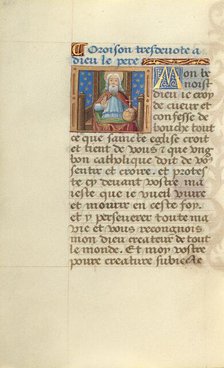 Oroison tresdevote a
dieu le pere
Mon be
noist
dieu ie croy
de cueur et
confesse de
bouche tout
ce que saincte eglise croit
et tient de vous et que ung
bon catholique doit de vo
sentir et croire et protes
te cy devant vostre ma
ieste que ie vueil vivre
et mourir en ceste foy.
et y perseverer toute ma
vie et vous recongnois
mon dieu createur de tout
le monde. Et moy vostre
povre creature subiecte